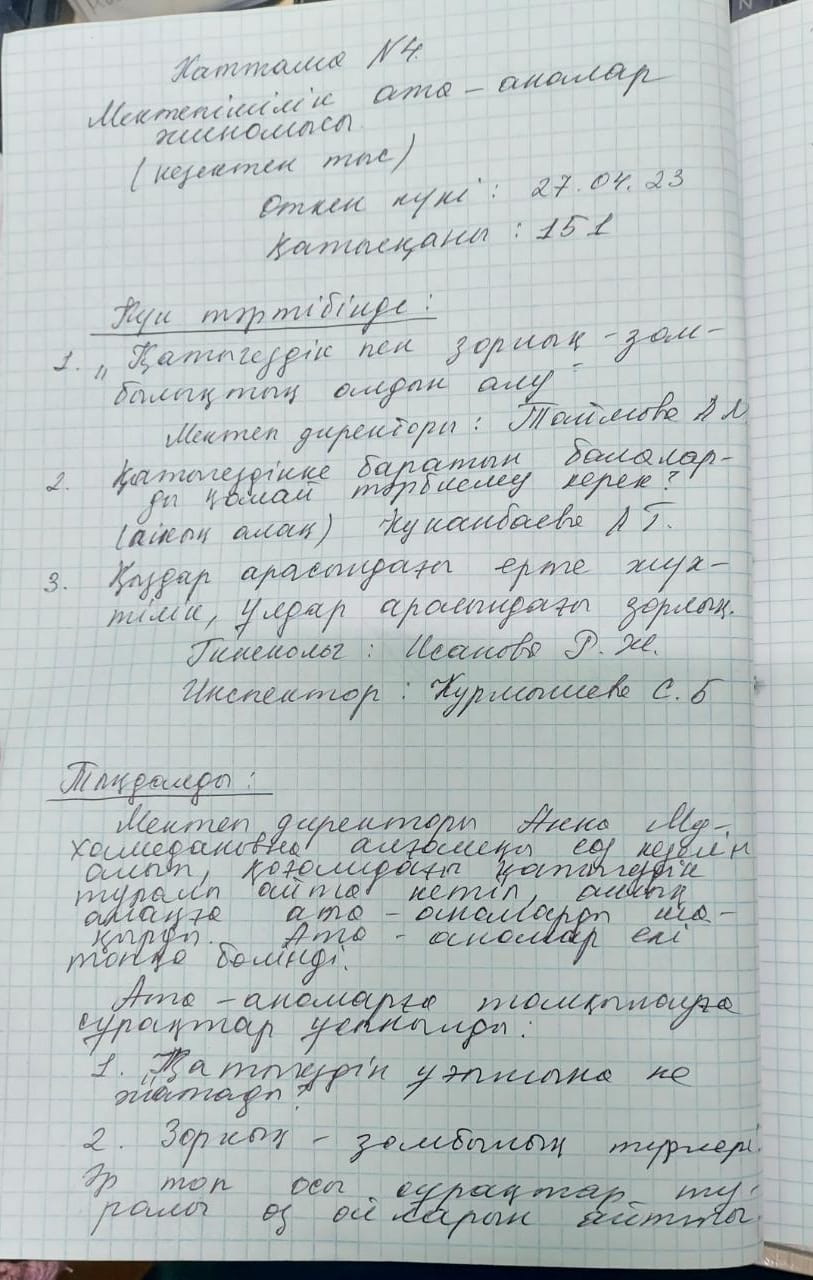 Хаттама N4.
Мектепішілік ата-аналар
жиналысы
(кезектен тыс)
Өткен күні: 27.04.23
Қатысқаны: 151
Күн тәртібінде:
1. „Қатыгездік пен зорлық-зом-
былықтың алдын алу"
Мектеп директоры: Таймова А М
2. Қатыгездікке баратын балалар-
ды қалай тәрбиелеу керек?
(ашық алаң) Кунанбаева А Г.
3. Қыздар арасындағы ерте жүк-
тілік, ұлдар арасындағы зорлық.
Гинеколог: Исанова Р. Ж.
Инспектор: Курмышева С. Б
Тыңдалды:
Мектеп директоры Анна Му-
хамедановна алғашқы сөз кезегін
алып, қоғамдағы қатыгездік
туралы айта кетіп, ашық
алаңға ата-аналарды ша-
қырды. Ата-аналар екі
топқа бөлінді.
Ата-аналарға талқылауға
сұрақтар ұсынылды:
1. Қатыгездік ұғымына не
жатады?
2. Зорлық-зомбылық түрлері.
Әр топ осы сұрақтар ту-
ралы өз ойларын айтты.